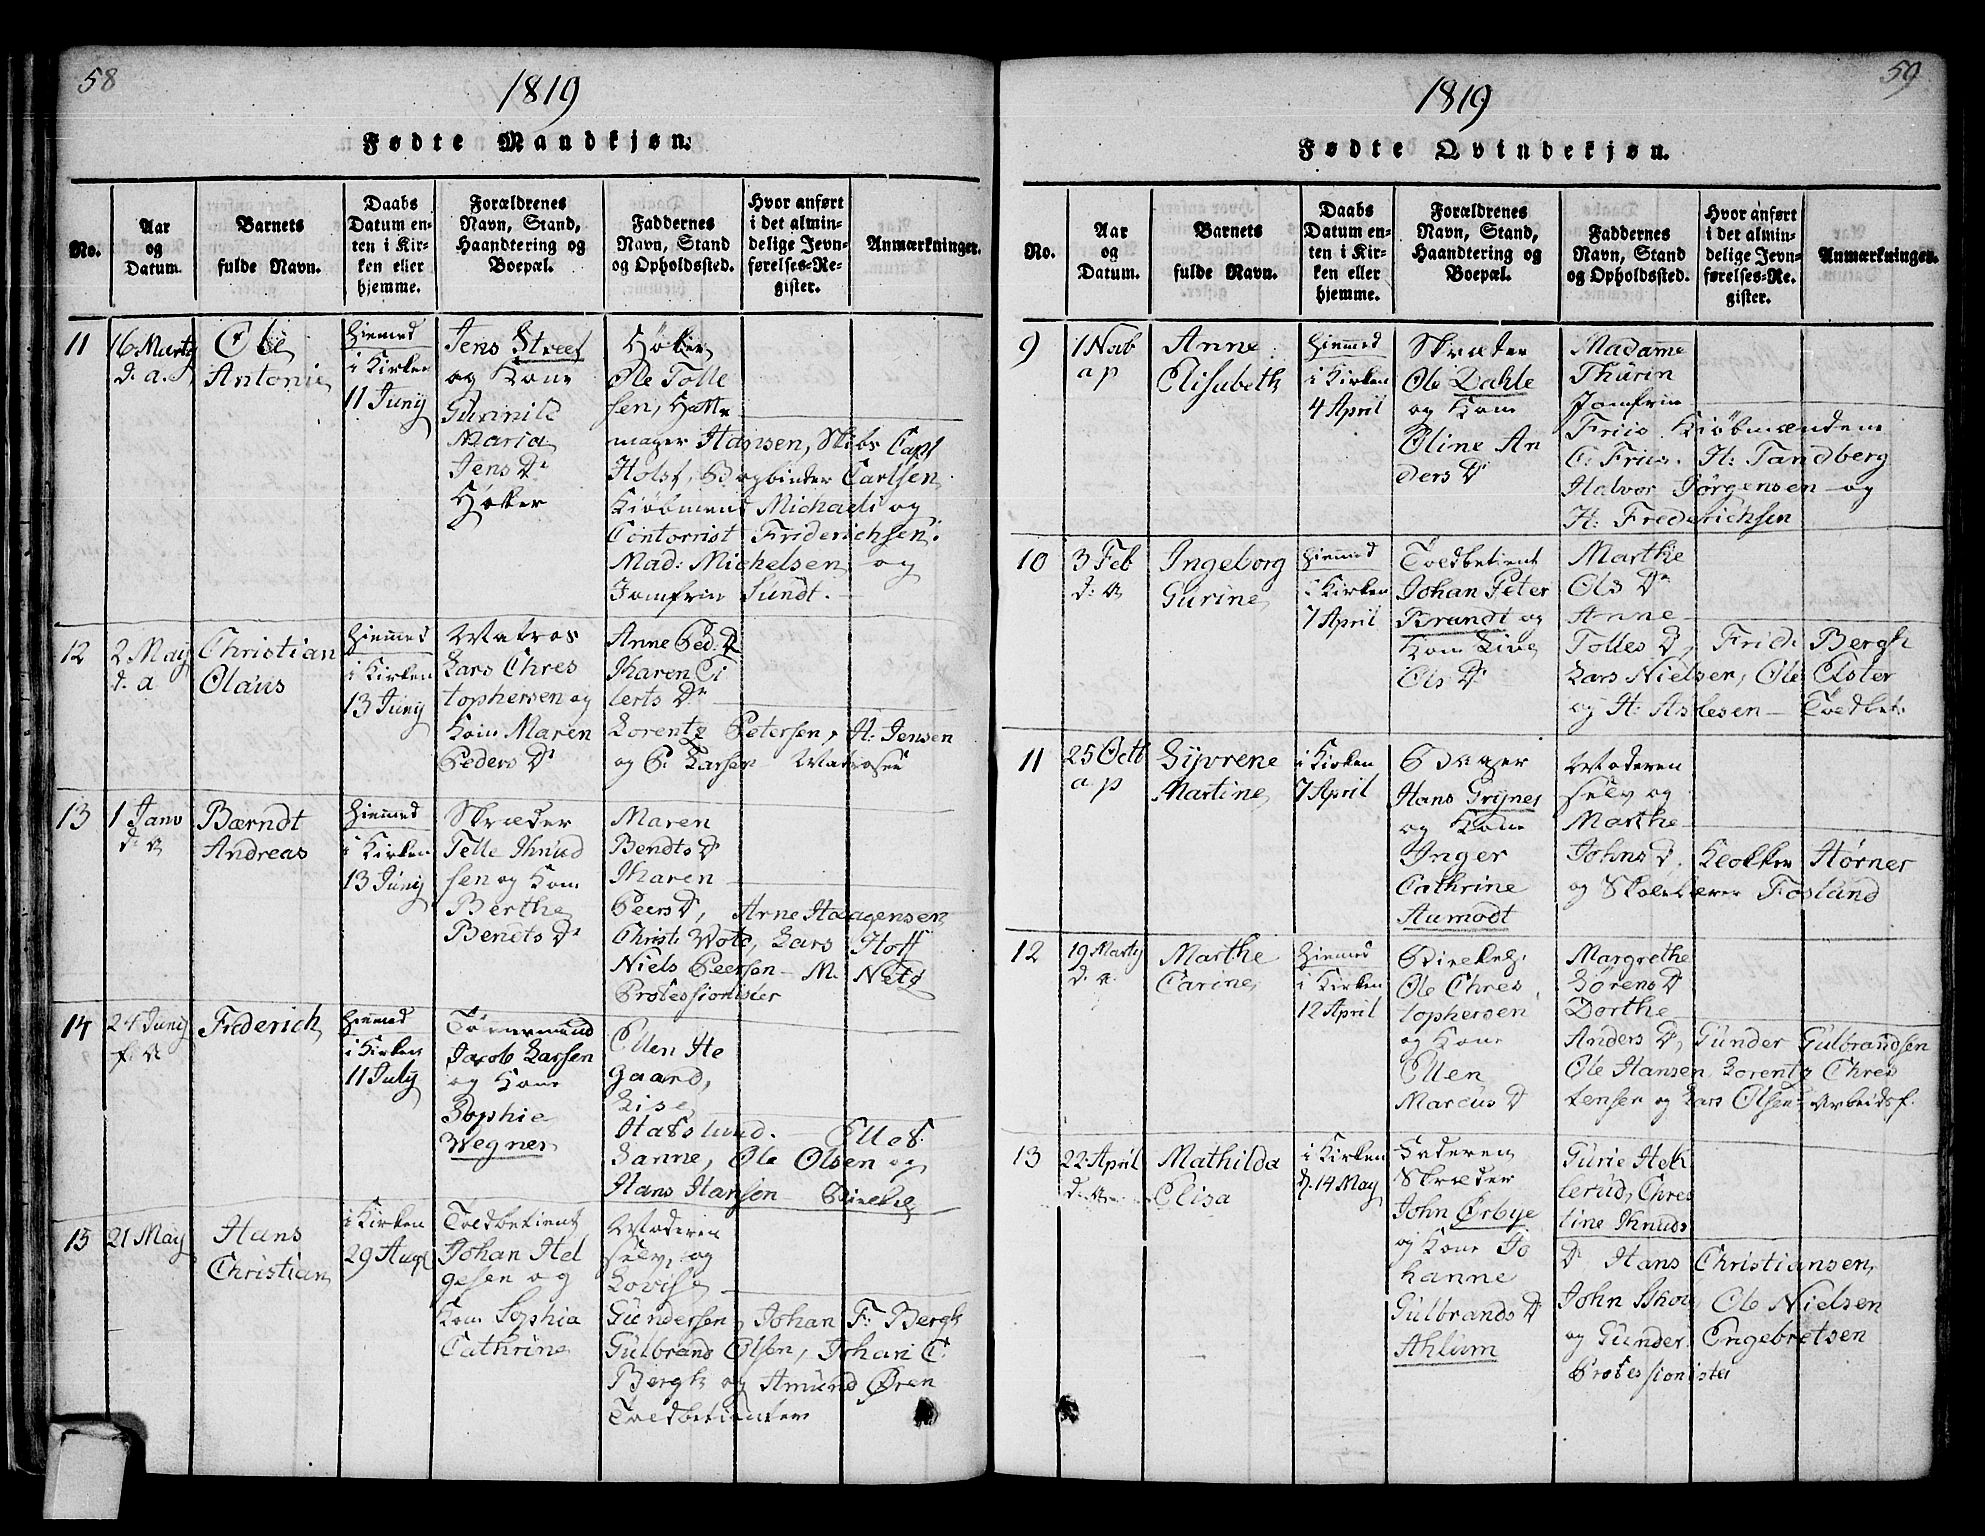 58
1819
Fødte Mandkjøn.
No.
Aar
og
Datum.
Barnets
fulde Navn.
Daabs
Datum en-
ten i Kir-
ken eller
hjemme.
Forældrenes
Navn, Stand,
Haandtering og
Boepæl.
Faddernes
Navn, Stand
og Opholdssted.
Hvor anført
i det almin-
delige Jevn-
førelses-Re-
gister.
Anmærkninger.
11
16 Marty
d. a.
Ole
Antonie
Hiemmed
i Kirken
11 Juny
Jens Streef
og Kone
Gunnild
Maria
Jens D.
Høker
Høker
Ole Tolle
sen, Hatte
mager Hansen, Skibs Capt
Holst, Bogbinder Carlsen
Kiøbmend Michaels og
Contorrist Friderichsen:
Mad: Michelsen og
Jomfrue Sundt.
12
2 May
d. a
Christian
Olaus
Hiemmed
i Kirken
13 Juny
Matros
Lars Chres
tophersen og
Kone Maren
Peders D.
Anne Ped: D.
Karen Ei
lerts D.
Lorentz Petersen, H: Jensen
og P. Larsen Matroser
13
1 Janv
d. a
Bærndt
Andreas
Hiemmed
i Kirken
13 Juny
Skræder
Telle Knud
sen og Kone
Berthe
Bendts D.
Maren
Bendts D.
Karen
Peers D, Arne Haagensen
Christ: Wold, Lars Hoff
Niels Peersen - M. Netz
Professionister
14
24 Juny
f. a
Friderich
Hiemmed
i Kirken
11 July
Tømermand
Jacob Larsen
og Kone
Sophie
Wegner
Ellen He
gaard,
Lise
Hafslund.
Sanne, Ole Olsen og
Hans Hansen
15
21 May
Hans
Christian
i Kirken
29 Aug
Toldbetient
Johan Hel
gesen og
Kone Sophia
Cathrine
Moderen
selv, og
Lovise
Gundersen, Johan F: Bergh
Gulbrand Olsen, Johan C:
Bergh og Amund Øren
Toldbetienter
59
1819
Fødte Qvindekjøn.
No.
Aar
og
Datum.
Barnets
fulde Navn.
Daabs
Datum en-
ten i Kir-
ken eller
hjemme.
Forældrenes
Navn, Stand,
Haandtering og
Boepæl.
Faddernes
Navn, Stand
og Opholdssted.
Hvor anført
i det almin-
delige Jevn-
førelses-Re-
gister.
Anmærkninger.
9
1 Nov
a p
Anne
Elisabeth
Hiemmed
i Kirken
4 April
Skræder
Ole Dahle
og Kone
Oline An
ders D.
Madamme
Thurin
Jomfrue
Friis. Kiøbmændene
C: Friis. H: Tandberg
Halvor Jørgensen og
H: Frederichsen
10
3 Feb
d: a
Ingeborg
Gurine
Hiemmed
i Kirken
7 April
Toldbetient
Johan Peter
Brandt og
Kone Live
Ols D.
Marthe
Ols D.
Anne
Tolles D, Frid: Bergh
Lars Nielsen, Ole Elster
og H: Aslesen - Toldbet.
11
25 Octb
a p
Syverene
Martine
i Kirken
7 April
Bager
Hans Grynes
og Kone
Inger
Cathrine
Aamodt
Moderen
selv og
Marthe
Johns D. Klokker Hørner
og Skolelærer Fosland
12
19 Marty
d. a.
Marthe
Carine
Hiemmed
i Kirken
12 April
Ole Chres
tophersen
og Kone
Ellen
Marcus D
Margrethe
Sørens D
Dorthe
Anders D, Gunder Gulbrandsen
Ole Hansen, Lorentz Chres
tensen og Lars Olsen - Arbeidsf.
13
22 April
d. a.
Mathilda
Elisa
i Kirken
d. 14 May
Skræder
John Ørbye
og Kone Jo
hanne
Gulbrands D
Ahlum
Gurie Hek
lerud, Chres
tine Knuds
D. Hans Christiansen,
John Skou, Ole Nielsen
og Gunder Engebretsen
Professionister